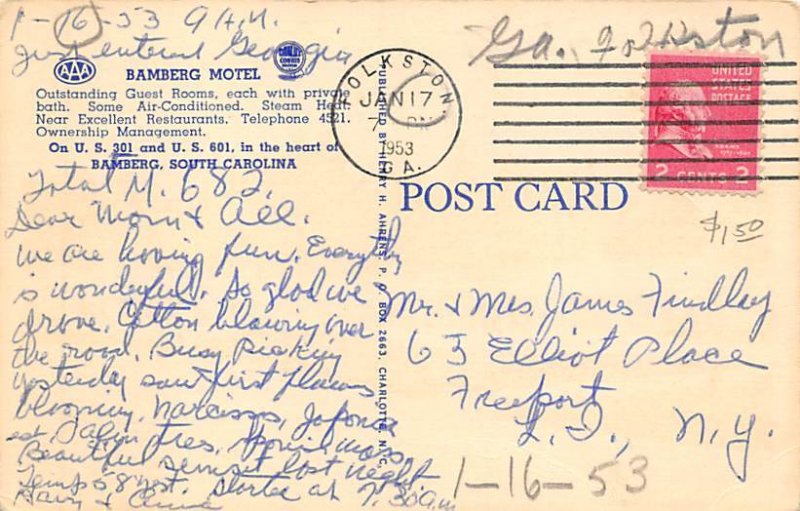 1-16-53 9 A.M.
Just entered Georgia
AAA
BAMBERG MOTEL
Outstanding Guest Rooms, each with private
bath. Some Air-Conditioned. Steam Heat.
Near Excellent Restaurants. Telephone 4521.
Ownership Management.
On U. S. 301 and U. S. 601, in the heart of
BAMBERG, SOUTH CAROLINA
Total M. 682.
Dear Mom & All.
We are having fun. Everything
is wonderful. So glad we
drove. Cotton blowing over
the road. Busy picking
yesterday saw first flowers
blooming, Narcissus, Japonica
Palm trees, Spanish moss,
Beautiful sunset last night
Temp 68 yest. Started at 7.30 a.m
Harry &
PUBLISHED BY HENRY H. AHRENS, P. O. BOX 2663, CHARLOTTE, N. C.
Ga. Folkston
FOLKSTON,
JAN 17
7 PM
1953
GA.
UNITED
STATES
POSTAGE
ADAMS
2 CENTS 2
POST CARD
$1.50
Mr. & Mrs. James Findley
65 Elliot Place
Freeport
L. I., N.Y.
1-16-53